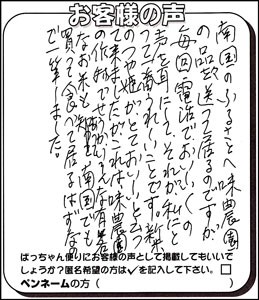 お客様の声
南国のふるさとへ味農園
の品を送って居るのですが
毎回電話でおいしくの
声を耳にしてそれが私にと
って一番うれしいことです。新米
のつや姫がとておいしいと云っ
て来ましたがこれは味農園
の作り
なお米も 南国でも
買って食べて居るはずなの
で一笑しました。
ばっちゃん便りにお客様の声として掲載してもいいで
しょうか?匿名希望の方は✓を記入して下さい。□
ペンネームの方（　　　　　　　　　　）